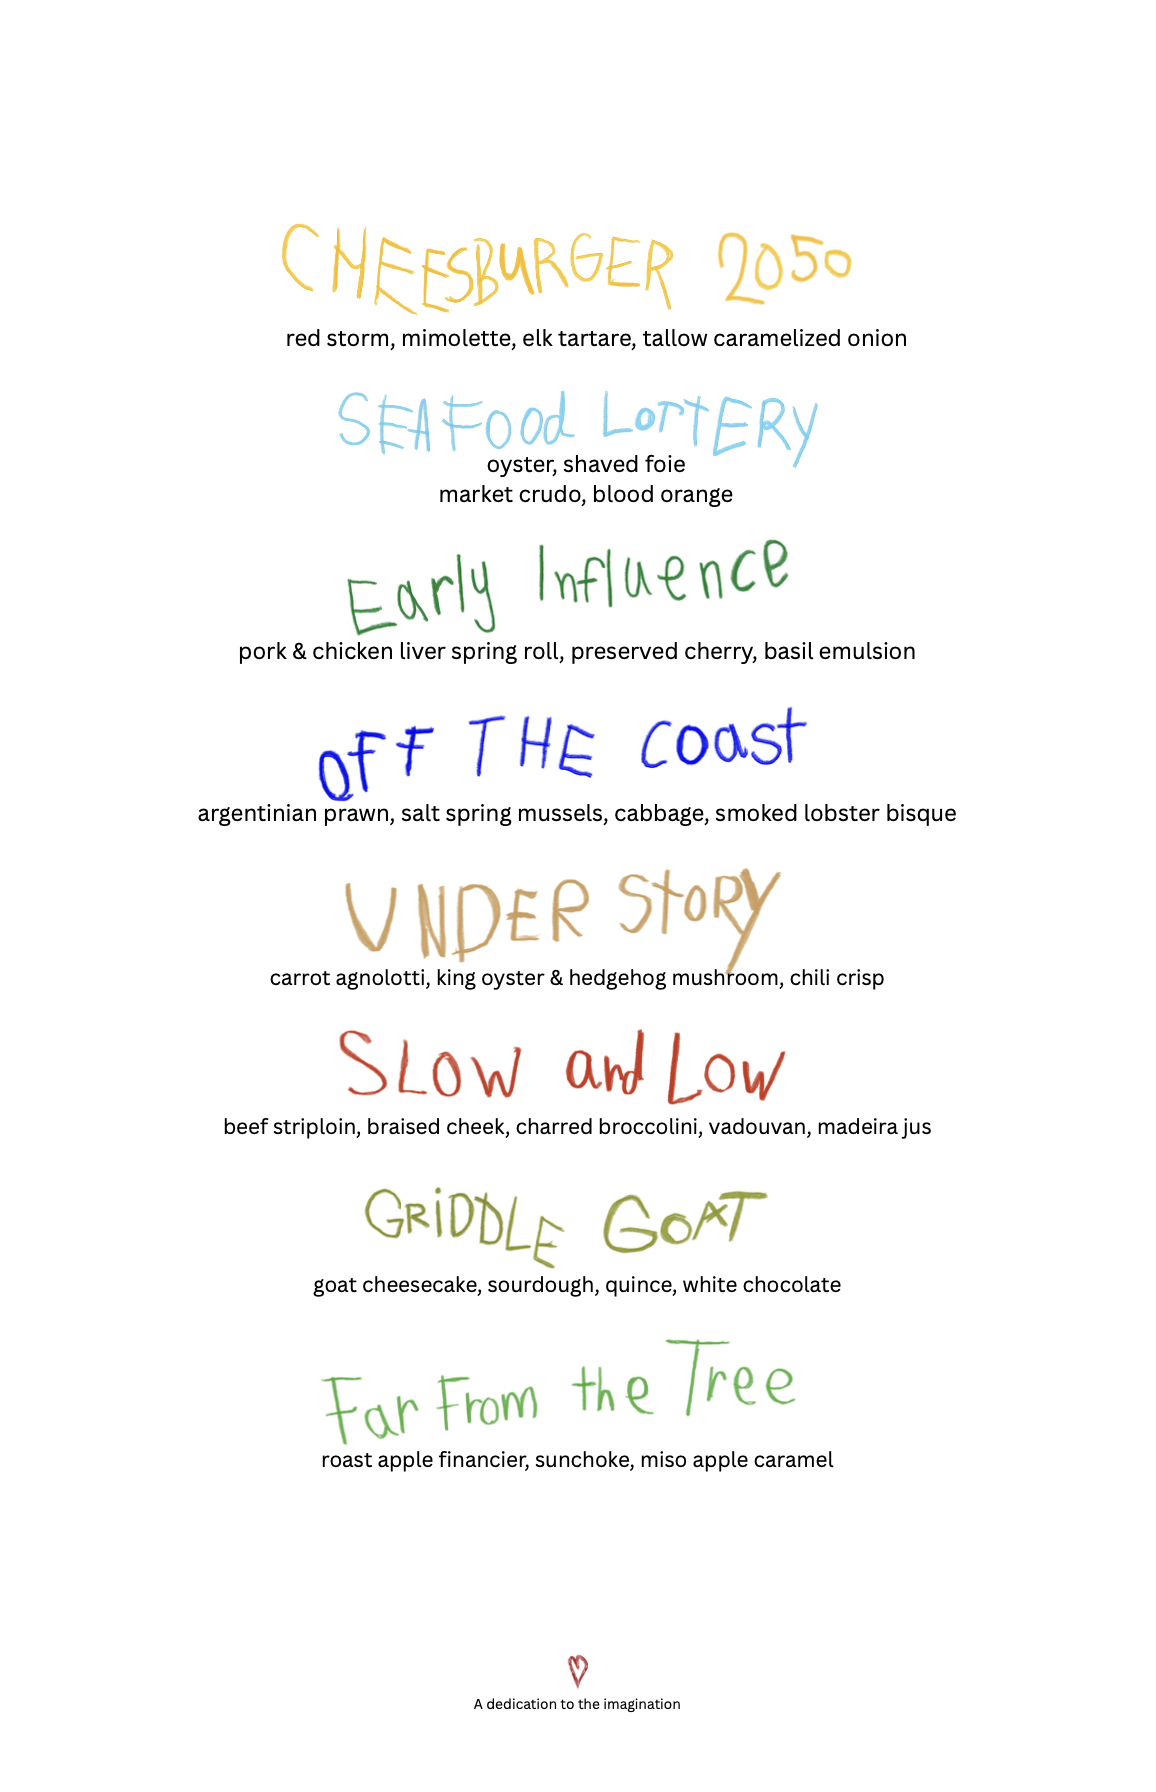 CHEESBURGER 2050
red storm, mimolette, elk tartare, tallow caramelized onion
SEAFood LoTTERY
oyster, shaved foie
market crudo, blood orange
Early Influence
pork & chicken liver spring roll, preserved cherry, basil emulsion
oFF THE coast
argentinian prawn, salt spring mussels, cabbage, smoked lobster bisque
UNDER StoRY
carrot agnolotti, king oyster & hedgehog mushroom, chili crisp
SLOW and Low
beef striploin, braised cheek, charred broccolini, vadouvan, madeira jus
GRiDDLE GoAT
goat cheesecake, sourdough, quince, white chocolate
Far From the Tree
roast apple financier, sunchoke, miso apple caramel
A dedication to the imagination